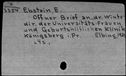 Ebstein, E.
Offner Brief an.. der Winter
dir. der Universitäts-Frauen
und Geburtshilflichen Klinik
Königsberg i. Pr. Elbing,